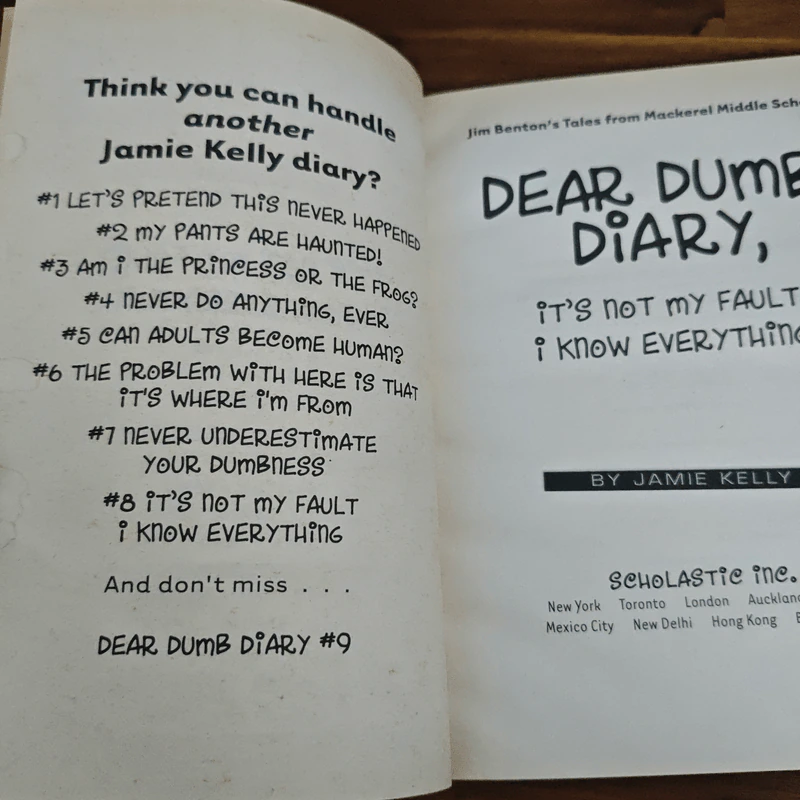 Think you can handle
another
Jamie Kelly diary?
#1 LET'S PRETEND THiS NEVER HAPPENED
#2 mY PANTS ARE HAUNTED!
#3 Am i THE PRiNCESS OR THE FROG?
#4 NEVER DO ANYTHiNG, EVER
#5 CAN ADULTS BECOmE HUmAN?
#6 THE PROBLEm WiTH HERE iS THAT
iT'S WHERE i'm FROm
#7 NEVER UNDERESTimATE
YOUR DUmBNESS
#8 iT'S NOT mY FAULT
i KNOW EVERYTHiNG
And don't miss . . .
DEAR DUmB DiARY #9
Jim Benton's Tales from Mackerel Middle
DEAR
DiARY,
iT'S NOT mY FAULT
i KNOW
BY JAMIE KELLY
SCHOLASTiC iNC.
New York Toronto London
Mexico City New Delhi Hong Kong